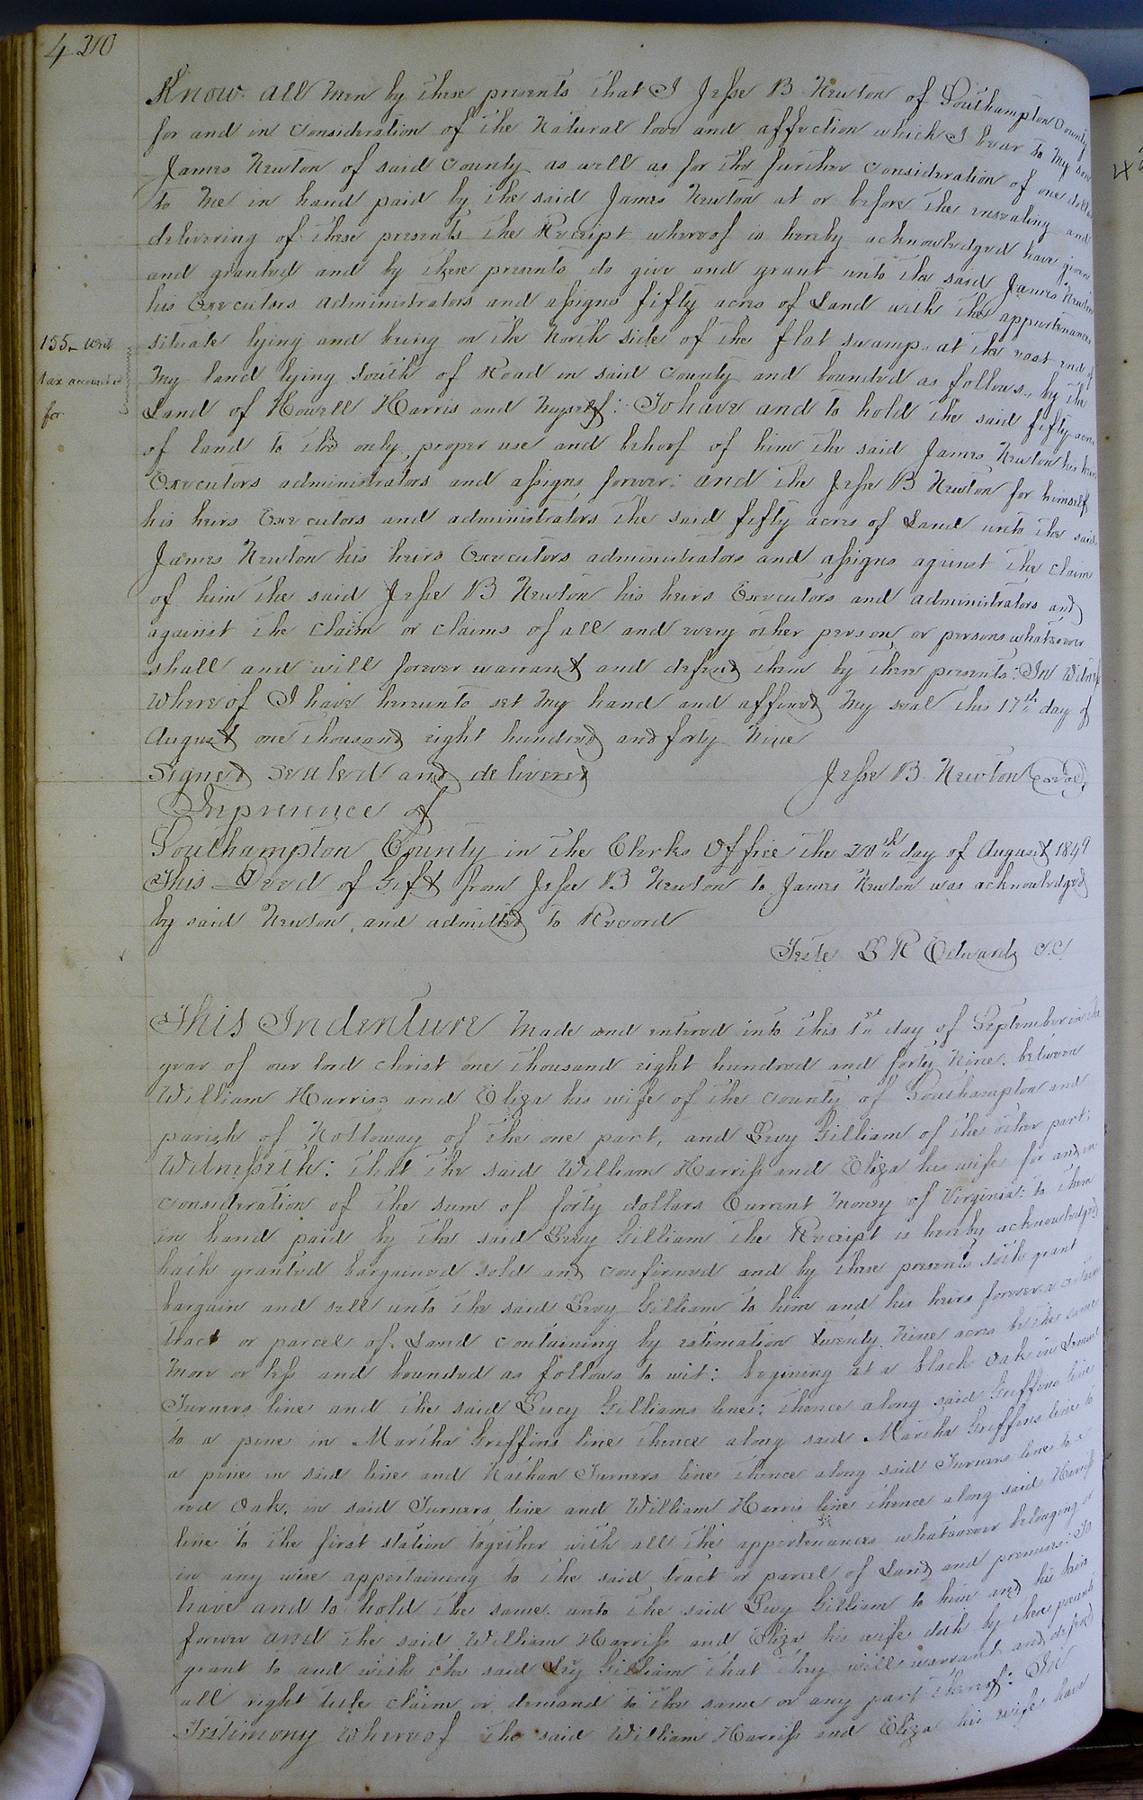 420
Know all men by these presents that I Jesse B Newton of Southampton County
for and in consideration of the Natural love and affection which I bear to my son
James Newton of said County as well as for the further consideration of one dollar
to me in hand paid by the said James Newton at or before the ensealing and
delivering of these presents the Receipt whereof is hereby acknowledged have given
and granted and by these presents do give and grant unto the said James Newton
his Executors administrators and assigns fifty acres of Land with the appurtenances
155 - Writ
tax accounted
for
situate lying and being on the North side of the flat swamp at the east end of
my land lying south of Road in said County and bounded as follows, by the
Land of Howell Harris and Myself: To have and to hold the said fifty acres
of land to the only proper use and behoof of him the said James Newton his heirs
Executors administrators and assigns forever: and the Jesse B Newton for himself
his heirs Executors and administrators the said fifty acres of Land unto the said
James Newton his heirs Executors administrators and assigns against the claim
of him the said Jesse B Newton his heirs Executors and administrators and
against the claim or claims of all and every other person or persons whatsoever
shall and will forever warrant and defend them by these presents: In Witness
Whereof I have hereunto set my hand and affixed my seal this 17th day of
August one thousand eight hundred and forty Nine
Signed Sealed and delivered Jesse B Newton (seal)
In presence of
Southampton County in the Clerks Office the 20th day of August 1849
This Deed of Gift from Jesse B Newton to James Newton was acknowledged
by said Newton, and admitted to Record
Teste L R Edwards C.C
This Indenture Made and entered into this 1st day of September in the
year of our lord Christ one thousand eight hundred and forty Nine. between
William Harriss and Eliza his wife of the County of Southampton and
parish of Nottoway of the one part, and Levy Gilliam of the other part:
Witnesseth: that the said William Harriss and Eliza his wife for and in
consideration of the sum of forty dollars Current money of Virginia: to them
in hand paid by the said Levy Gilliam the Receipt is hereby acknowledged
hath granted bargained sold and confirmed and by these presents doth grant
bargain and sell unto the said Levy Gilliam to him and his heirs forever a certain
tract or parcel of Land containing by estimation twenty Nine acres be the same
more or less and bounded as follows to wit: begining at a black oak in
Turners line and the said Levy Gilliams line: thence along said Griffins line
to a pine in Martha Griffins line thence along said Martha Griffins line to
a pine in said line and Nathan Turners line thence along said Turners line to a
red Oak, in said Turners line and William Harris line thence along said Harriss
line to the first station together with all the appertenances whatsoever belonging or
in any wise appertaining to the said tract or parcel of Land and premises: To
have and to hold the same unto the said Levy Gilliam to him and his heirs
forever and the said William Harriss and Eliza his wife doth by these presents
grant to and with the said Levy Gilliam that they will warrant and defend
all right title claim or demand to the same or any part thereof: In
Testimony whereof the said William Harriss and Eliza his wife have